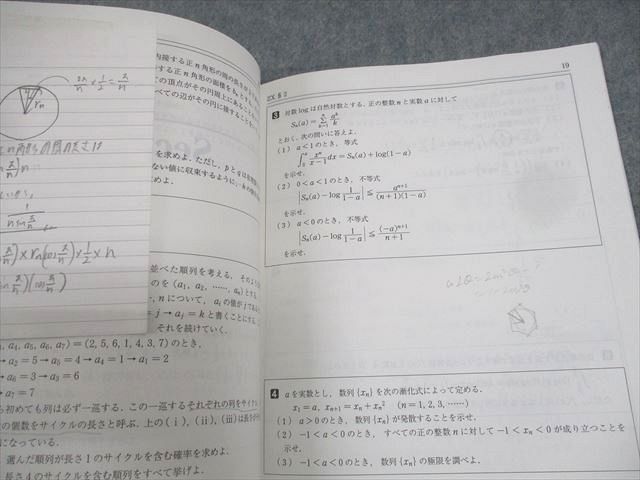 2π/n × 1/2 = π/n
rn
1
n sin π/n
) × rn (cos π/n) × 1/2 × n
) (cos π/n)
内接する正n角形の
する正n角形の面積をbnと
ての頂点がその円周上にある
べての辺がその円に接すること
を求めよ．ただし，pとqは
ない値に収束するように，
めよ．
並べた順列を考える．
のを (a₁, a₂, ……, aₙ)とする．
→aⱼ＝kと書くことにする．
それを続けていく．
a₄, a₅, a₆, a₇)＝(2, 5, 6, 1, 4, 3, 7)のとき，
→a₂＝5→a₅＝4→a₄＝1→a₁＝2
→a₆＝3→a₃＝6
→a₇＝7
も初めても列は必ず一巡する．この一巡するそれぞれの列をサイクル
の個数をサイクルの長さと呼ぶ．上の(ⅰ), (ⅱ), (ⅲ)は長さが
になっている．
選んだ順列が長さ1のサイクルを含む確率を求めよ．
長さ4のサイクルを含む順列をすべて挙げよ．
EX § 2
19
3 対数logは自然対数とする．正の整数nと実数aに対して
Sₙ(a)＝Σ_{k=1}^{n} a^k/k
とおく．次の問いに答えよ．
(1) a＜1のとき，等式
∫₀^a x^n/(x−1) dx＝Sₙ(a)＋log(1−a)
を示せ．
(2) 0＜a＜1のとき，不等式
|Sₙ(a)−log 1/(1−a)|≦a^(n+1)/((n+1)(1−a))
を示せ．
(3) a＜0のとき，不等式
|Sₙ(a)−log 1/(1−a)|≦(−a)^(n+1)/(n+1)
を示せ．
4 aを実数とし，数列{xₙ}を次の漸化式によって定める．
x₁＝a, xₙ₊₁＝xₙ＋xₙ² (n＝1, 2, 3, ……)
(1) a＞0のとき，数列{xₙ}が発散することを示せ．
(2) −1＜a＜0のとき，すべての正の整数nに対して−1＜xₙ＜0が成り立つことを
示せ．
(3) −1＜a＜0のとき，数列{xₙ}の極限を調べよ．